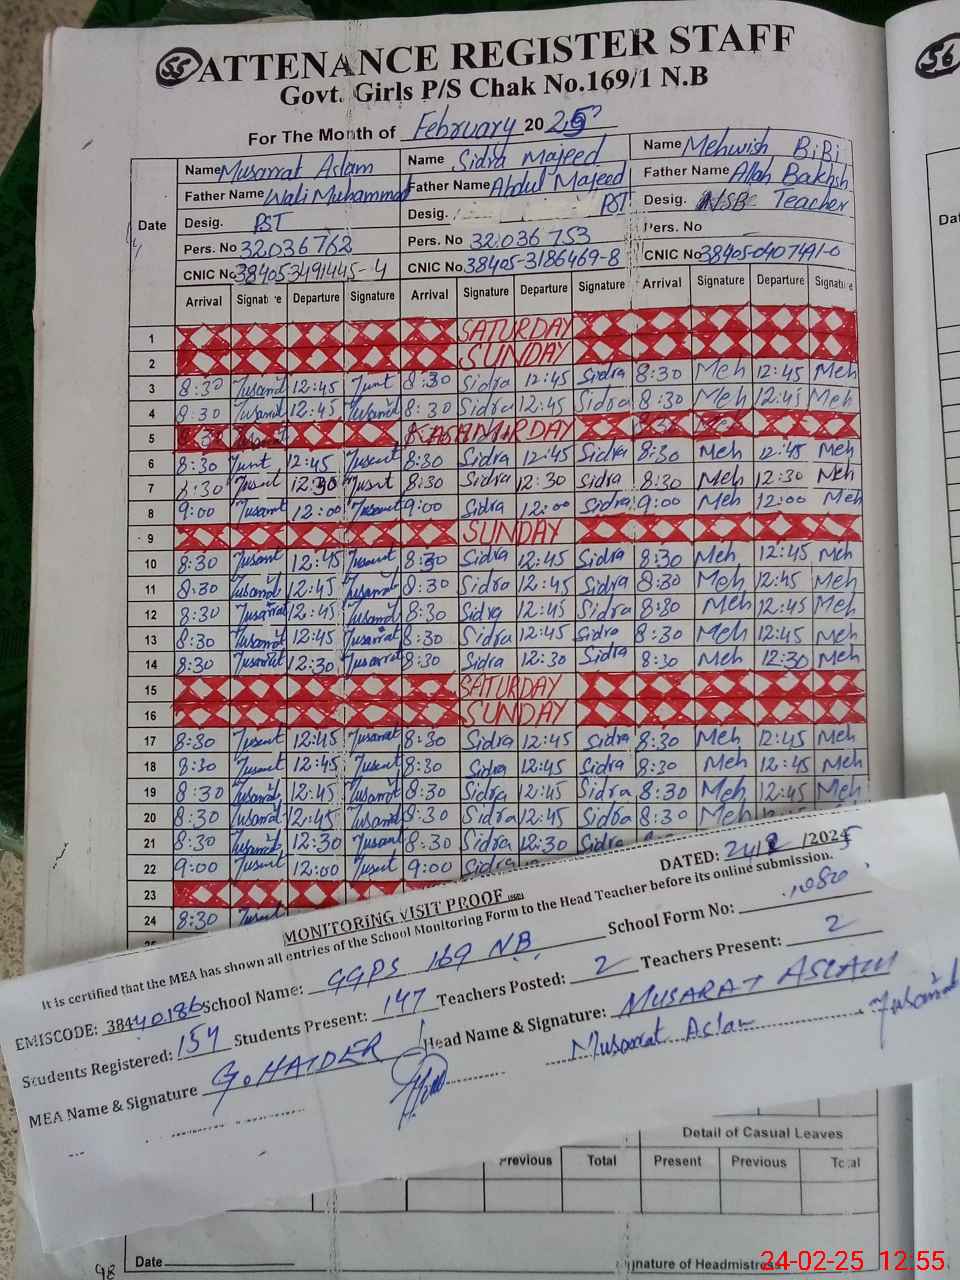 55 ATTENANCE REGISTER STAFF 56
Govt. Girls P/S Chak No.169/1 N.B
For The Month of February 2025
Date Name Musarrat Aslam Name Sidra Majeed Name Mehwish BiBi
Father Name Wali Muhammad Father Name Abdul Majeed Father Name Allah Bakhsh
Desig. PST Desig. PST Desig. NSB Teacher
Pers. No 32036762 Pers. No 32036753 Pers. No
CNIC No 384053491445-4 CNIC No 38405-3186469-8 CNIC No 38405-0407491-0
Arrival Signature Departure Signature Arrival Signature Departure Signature Arrival Signature Departure Signature
1 SATURDAY
2 SUNDAY
3 8:30 12:45 8:30 Sidra 12:45 Sidra 8:30 Meh 12:45 Meh
4 8:30 12:45 8:30 Sidra 12:45 Sidra 8:30 Meh 12:45 Meh
5 KASHMIR DAY
6 8:30 12:45 8:30 Sidra 12:45 Sidra 8:30 Meh 12:45 Meh
7 8:30 12:30 8:30 Sidra 12:30 Sidra 8:30 Meh 12:30 Meh
8 9:00 12:00 9:00 Sidra 12:00 Sidra 9:00 Meh 12:00 Meh
9 SUNDAY
10 8:30 12:45 8:30 Sidra 12:45 Sidra 8:30 Meh 12:45 Meh
11 8:30 12:45 8:30 Sidra 12:45 Sidra 8:30 Meh 12:45 Meh
12 8:30 12:45 8:30 Sidra 12:45 Sidra 8:30 Meh 12:45 Meh
13 8:30 12:45 8:30 Sidra 12:45 Sidra 8:30 Meh 12:45 Meh
14 8:30 12:30 8:30 Sidra 12:30 Sidra 8:30 Meh 12:30 Meh
15 SATURDAY
16 SUNDAY
17 8:30 12:45 8:30 Sidra 12:45 Sidra 8:30 Meh 12:45 Meh
18 8:30 12:45 8:30 Sidra 12:45 Sidra 8:30 Meh 12:45 Meh
19 8:30 12:45 8:30 Sidra 12:45 Sidra 8:30 Meh 12:45 Meh
20 8:30 12:45 8:30 Sidra 12:45 Sidra 8:30 Meh
21 8:30 12:30 8:30 Sidra 12:30 Sidra
22 9:00 12:00 9:00 Sidra
23
24 8:30
MONITORING VISIT PROOF DATED: 24/2/2025
It is certified that the MEA has shown all entries of the School Monitoring Form to the Head Teacher before its online submission.
EMISCODE: 38440186 School Name: GGPS 169 NB School Form No: 1080
Students Registered: 154 Students Present: 147 Teachers Posted: 2 Teachers Present: 2
MEA Name & Signature G. HAIDER Head Name & Signature: MUSARAT ASLAM
Musarrat Aslam
Detail of Casual Leaves
Previous Total Present Previous Total
Date Signature of Headmistress
98
24-02-25 12:55